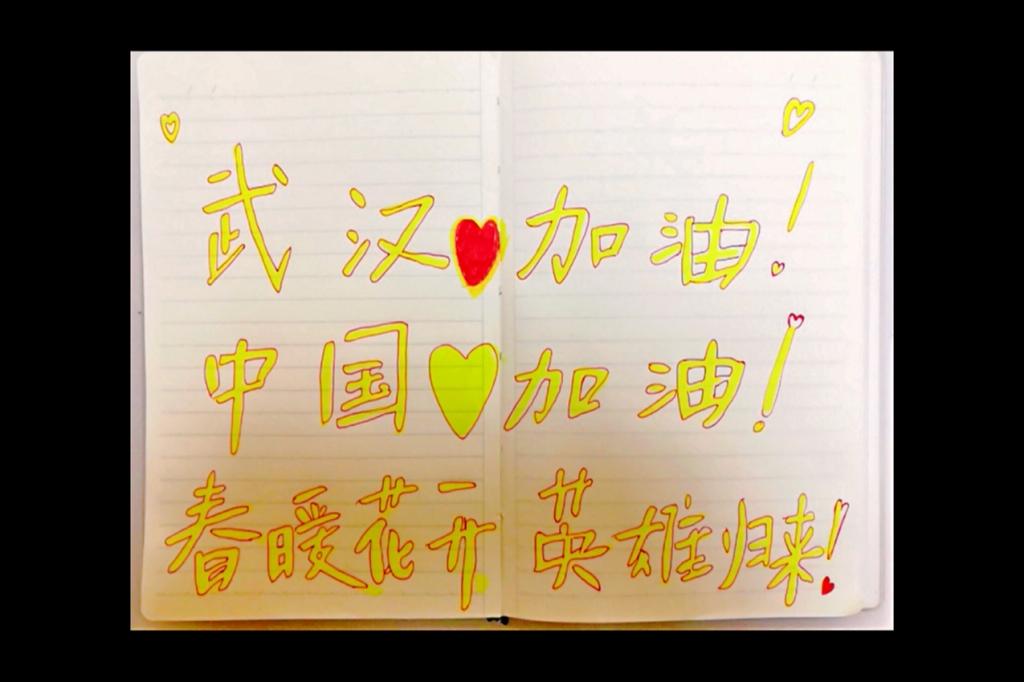 武汉加油!
中国加油!
春暖花开 英雄归来!